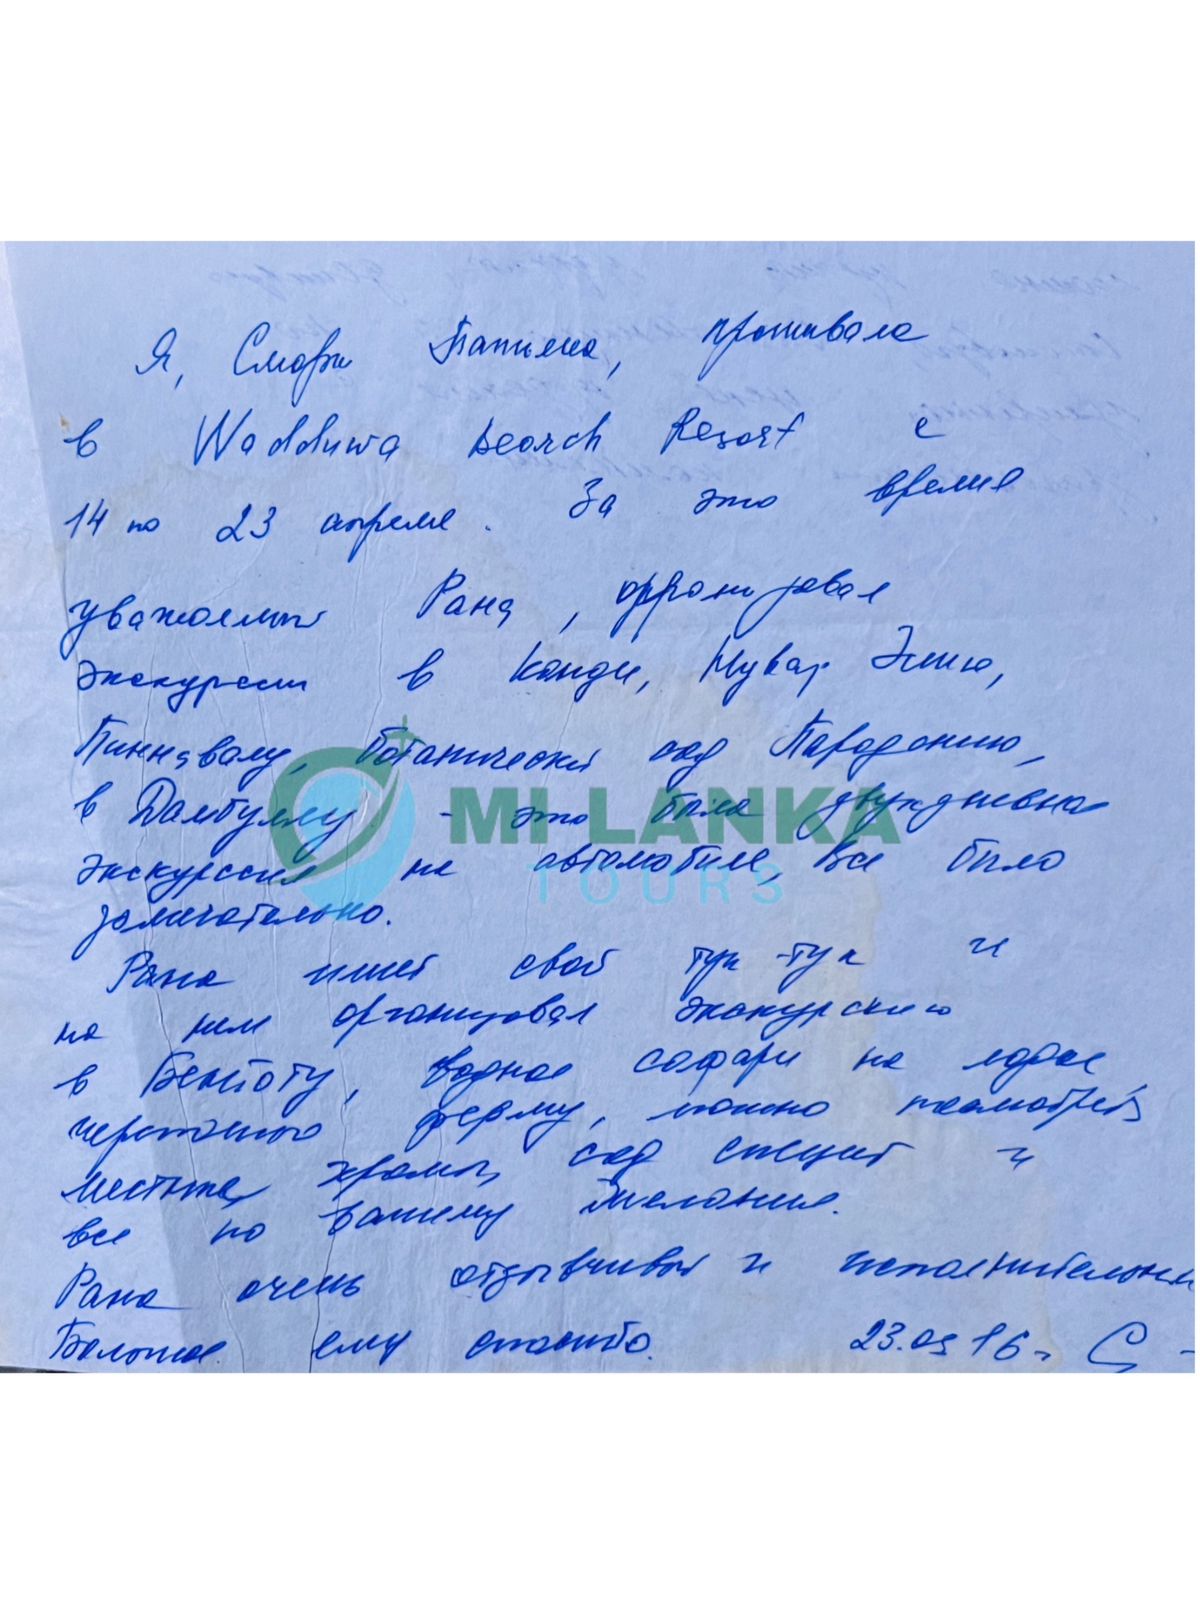 Я, Татьяна, проживала
в Wadduwa Beach Resort с
14 по 23 апреля. За это время
уважаемый Рана, организовал
экскурсии в Канди, Нувар Элию,
Пиннавалу, Ботанический сад Парадению,
в Дамбуллу - это была двухдневная
MI LANKA
экскурсия на автомобиле, все было
TOURS
замечательно.
Рана имеет свой тук-тук и
на нем организовал экскурсию
в Бентоту, водное сафари на лодке
черепашью ферму, можно посмотреть
местные храмы, сад специй и
все по вашему желанию.
Рана очень отзывчивый и исполнительный
Большое ему спасибо. 16г.